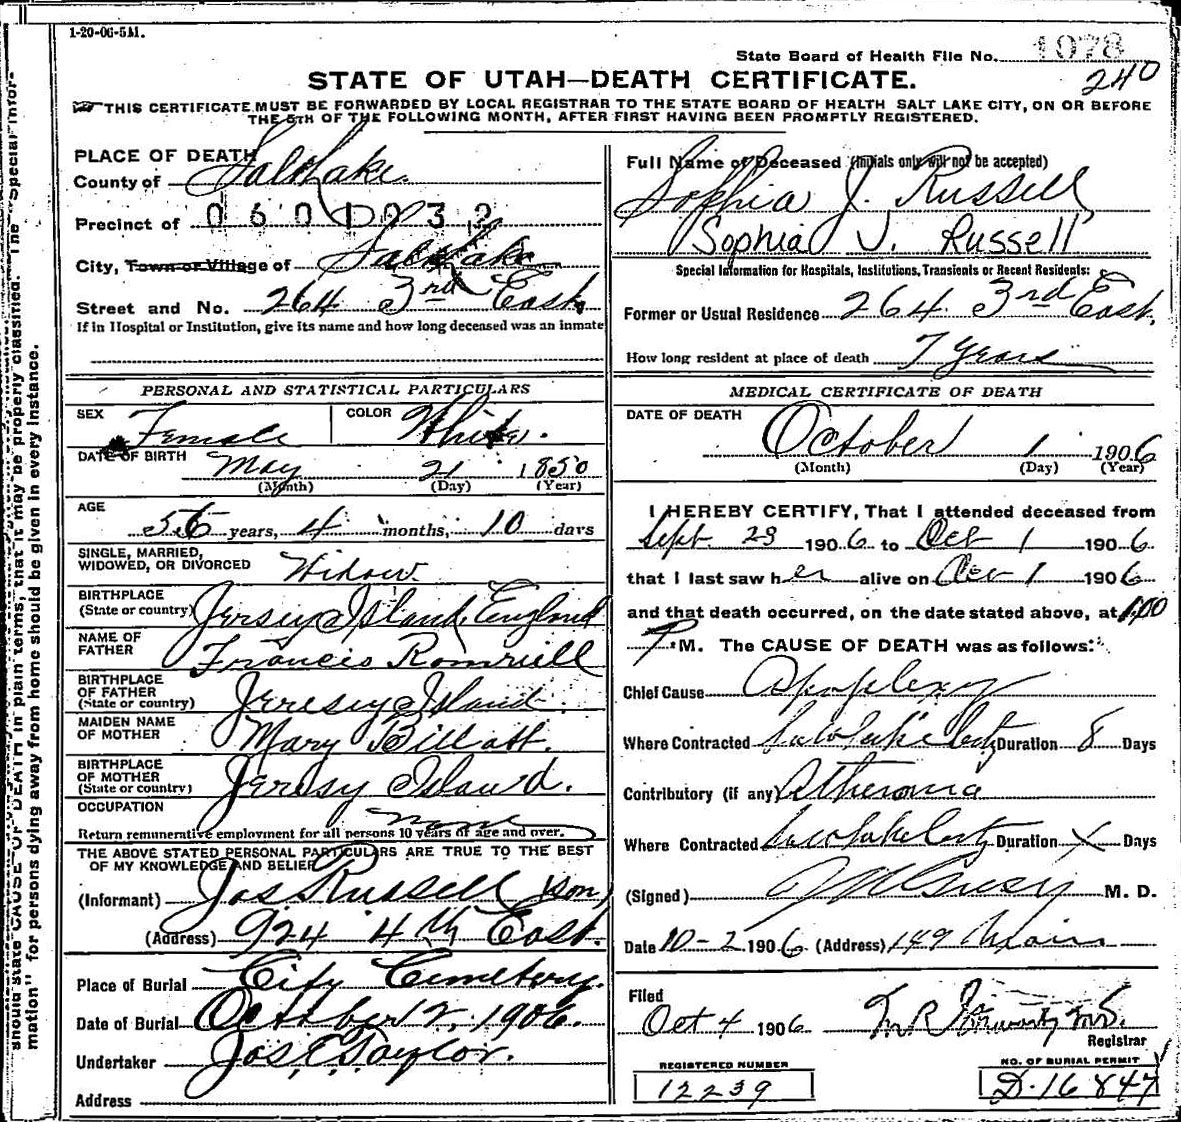 1-20-06-5M.
State Board of Health File No. 1078
240
STATE OF UTAH—DEATH CERTIFICATE.
THIS CERTIFICATE MUST BE FORWARDED BY LOCAL REGISTRAR TO THE STATE BOARD OF HEALTH SALT LAKE CITY, ON OR BEFORE
THE 5TH OF THE FOLLOWING MONTH, AFTER FIRST HAVING BEEN PROMPTLY REGISTERED.
PLACE OF DEATH
County of Salt Lake
Precinct of 0601032
City, Town or Village of Salt Lake
Street and No. 264 3rd East
If in Hospital or Institution, give its name and how long deceased was an inmate
Full Name of Deceased (Initials only will not be accepted)
Sophia J. Russell
Sophia J. Russell
Special Information for Hospitals, Institutions, Transients or Recent Residents:
Former or Usual Residence 264 3rd East.
How long resident at place of death 7 years
PERSONAL AND STATISTICAL PARTICULARS
SEX Female COLOR White.
DATE OF BIRTH May 21 1850
(Month) (Day) (Year)
AGE
56 years, 4 months, 10 days
SINGLE, MARRIED,
WIDOWED, OR DIVORCED Widow
BIRTHPLACE
(State or country) Jersey Island, England
NAME OF
FATHER Francis Romriell
BIRTHPLACE
OF FATHER
(State or country) Jerresy Island
MAIDEN NAME
OF MOTHER Mary Billatt.
BIRTHPLACE
OF MOTHER
(State or country) Jersey Island.
OCCUPATION none
Return remunerative employment for all persons 10 years of age and over.
THE ABOVE STATED PERSONAL PARTICULARS ARE TRUE TO THE BEST
OF MY KNOWLEDGE AND BELIEF
(Informant) Jas Russell son
(Address) 924 4th East.
Place of Burial City Cemetery.
Date of Burial October 2, 1906.
Undertaker Jos. E Taylor.
Address
MEDICAL CERTIFICATE OF DEATH
DATE OF DEATH October 1 1906
(Month) (Day) (Year)
I HEREBY CERTIFY, That I attended deceased from
Sept. 23 1906 to Oct 1 1906.
that I last saw her alive on Oct 1 1906
and that death occurred, on the date stated above, at 1.00
P M. The CAUSE OF DEATH was as follows:
Chief Cause Apoplexy
Where Contracted Salt Lake City Duration 8 Days
Contributory (if any) Atheroma
Where Contracted Salt Lake City Duration X Days
(Signed) M. D.
Date 10-2 1906 (Address) 149 Main
Filed
Oct 4 1906
Registrar
REGISTERED NUMBER
12239
NO. OF BURIAL PERMIT
D-16847
should state CAUSE OF DEATH in plain terms, that it may be properly classified. The "Special Infor-
mation" for persons dying away from home should be given in every instance.